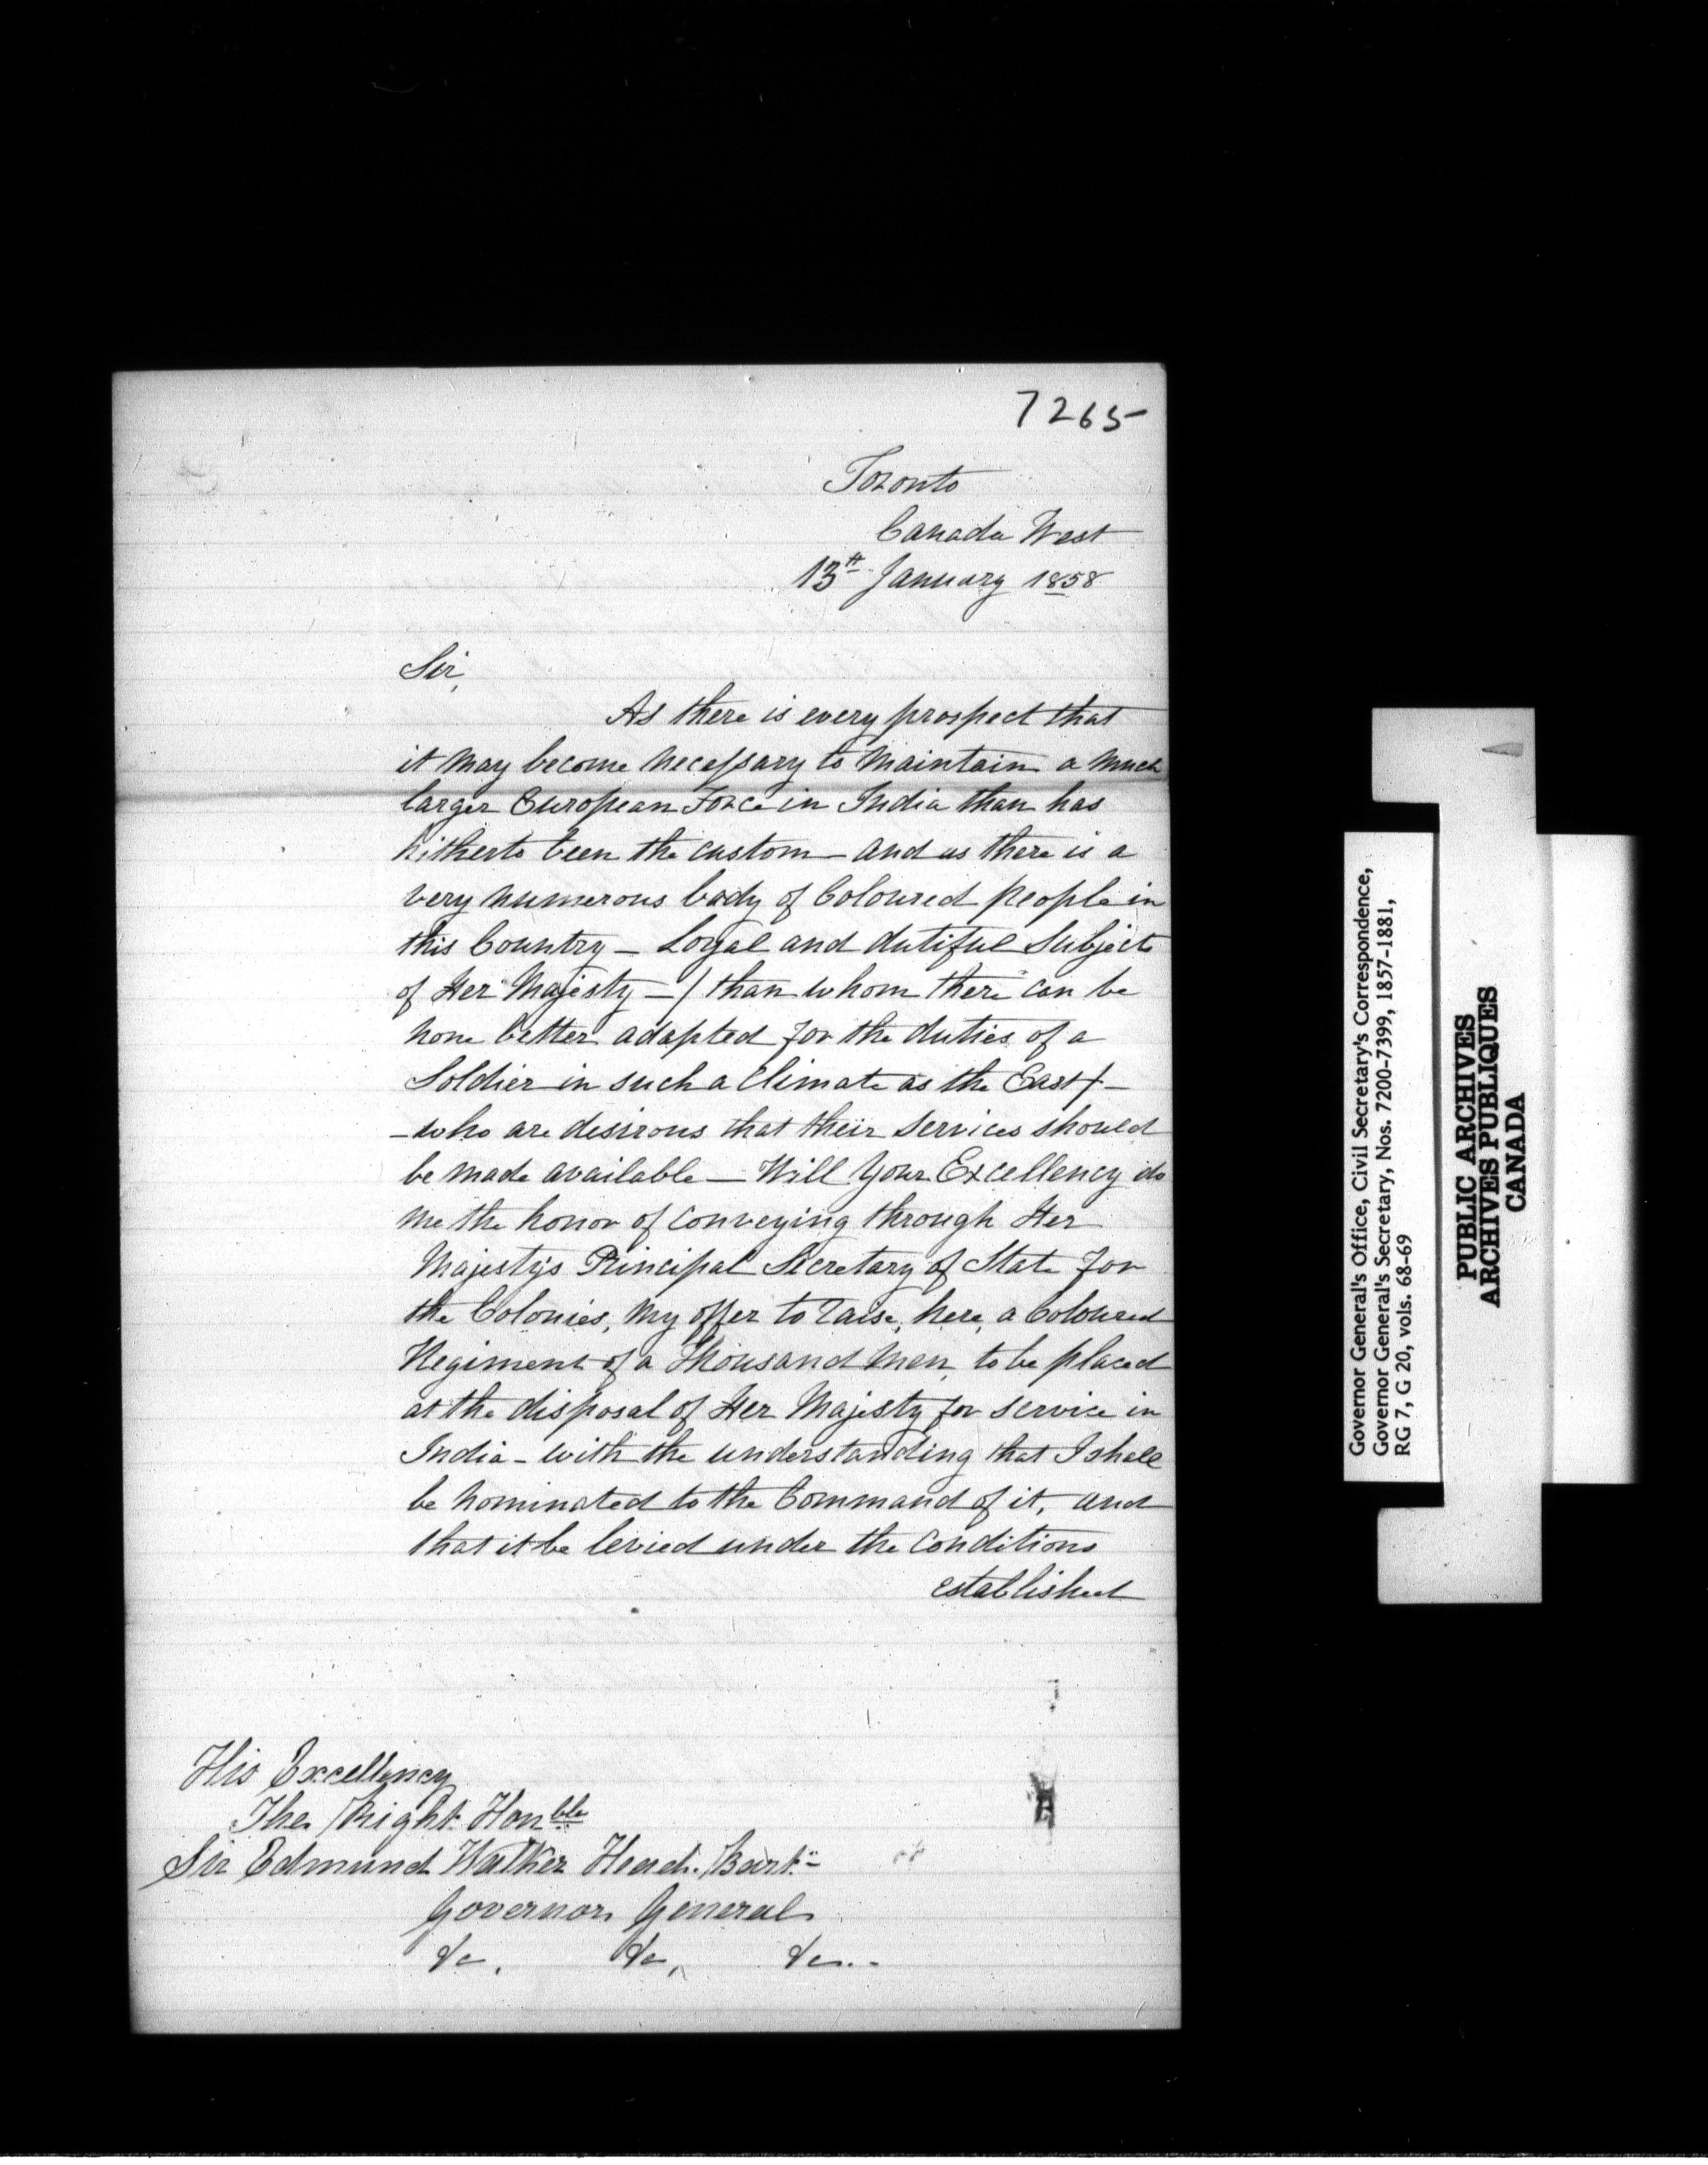 7265
Toronto
Canada West
13th January 1858
Sir,
As there is every prospect that
it may become necessary to maintain a much
larger European Force in India than has
hitherto been the custom — and as there is a
very numerous body of Coloured people in
this Country — Loyal and dutiful Subjects
of Her Majesty — (than whom there can be
none better adapted for the duties of a
Soldier in such a Climate as the East) —
— who are desirous that their services should
be made available — Will Your Excellency do
me the honor of conveying through Her
Majesty's Principal Secretary of State for
the Colonies, my offer to raise, here, a Coloured
Regiment of a Thousand Men, to be placed
at the disposal of Her Majesty for service in
India — with the understanding that I shall
be nominated to the Command of it, and
that it be levied under the Conditions
established
His Excellency
The Right Honble
Sir Edmund Walker Head. Bart.
Governor General
&c, &c, &c..
Governor General's Office, Civil Secretary's Correspondence,
Governor General's Secretary, Nos. 7200-7399, 1857-1881,
RG 7, G 20, vols. 68-69
PUBLIC ARCHIVES
ARCHIVES PUBLIQUES
CANADA